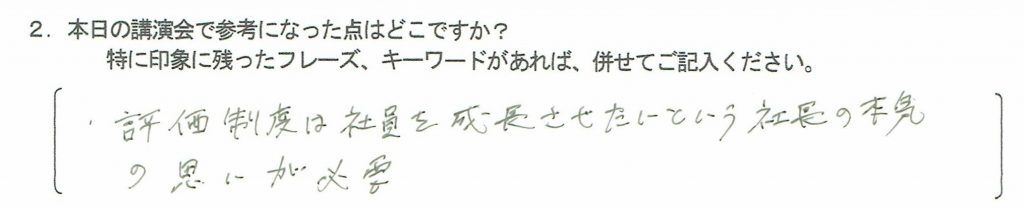 2．本日の講演会で参考になった点はどこですか？
特に印象に残ったフレーズ、キーワードがあれば、併せてご記入ください。
・評価制度は社員を成長させたいという社長の本気
の思いが必要